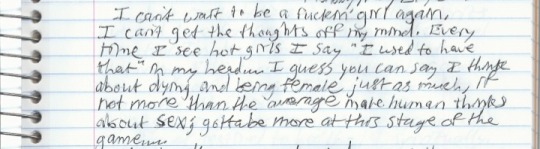 I can't wait to be a fuckin' girl again.
I can't get the thoughts off my mind. Every
time I see hot girls I say "I used to have
that" in my head... I guess you can say I think
about dying and being female just as much, if
not more than the average male human thinks
about sex; gotta be more at this stage of the
game...